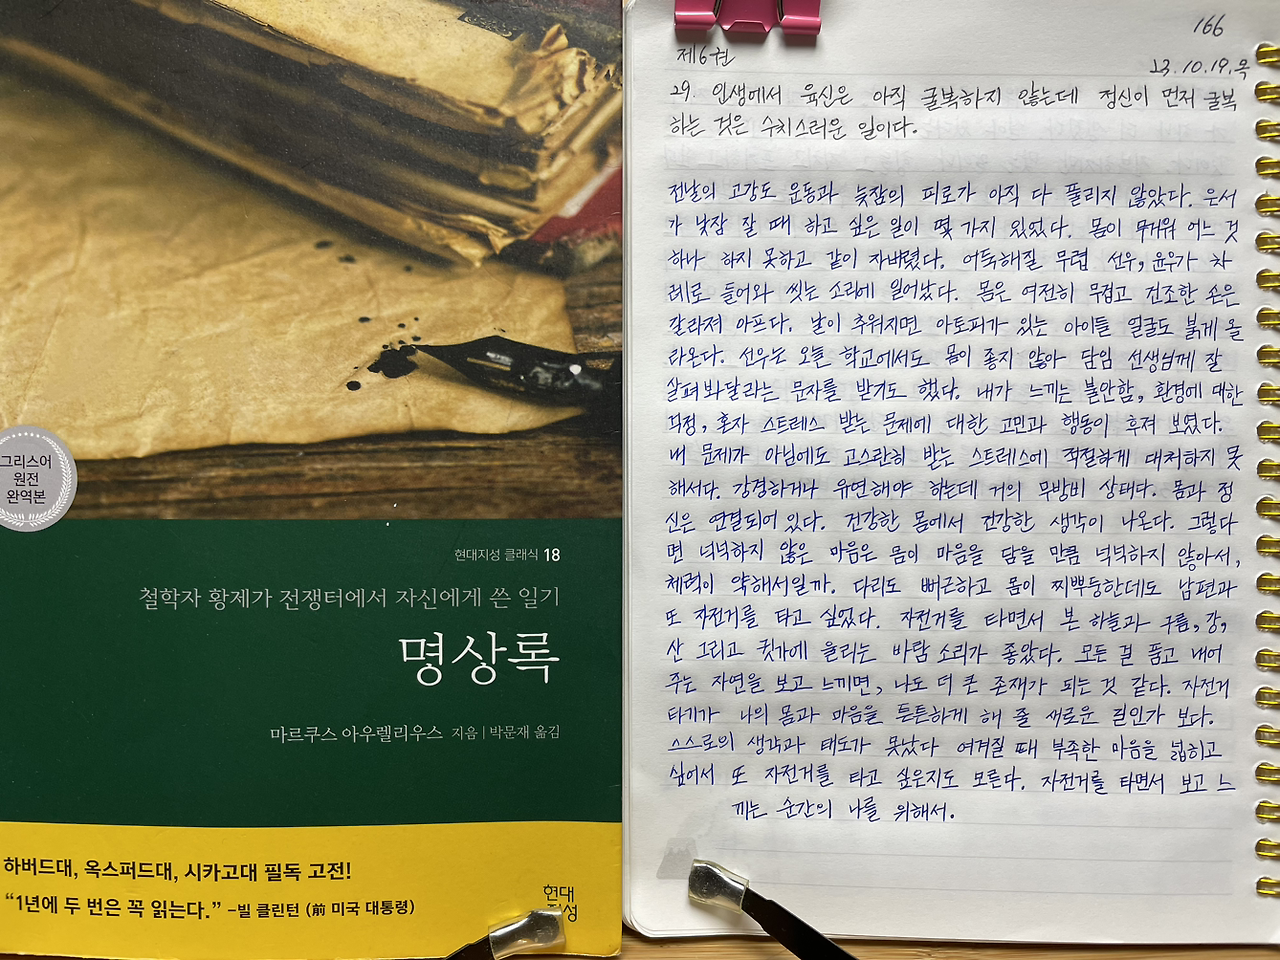 그리스어
원전
완역본
현대지성 클래식 18
철학자 황제가 전쟁터에서 자신에게 쓴 일기
명상록
마르쿠스 아우렐리우스 지음 | 박문재 옮김
하버드대, 옥스퍼드대, 시카고대 필독 고전!
“1년에 두 번은 꼭 읽는다.” –빌 클린턴 (前 미국 대통령)
현대
지성
166
제6권
23.10.19.목
29. 인생에서 육신은 아직 굴복하지 않는데 정신이 먼저 굴복
하는 것은 수치스러운 일이다.
전날의 고강도 운동과 늦잠의 피로가 아직 다 풀리지 않았다. 은서
가 낮잠 잘 때 하고 싶은 일이 몇 가지 있었다. 몸이 무거워 어느 것
하나 하지 못하고 같이 자버렸다. 어둑해질 무렵 선우, 윤우가 차
례로 들어와 씻는 소리에 일어났다. 몸은 여전히 무겁고 건조한 손은
갈라져 아프다. 날이 추워지면 아토피가 있는 아이들 얼굴도 붉게 올
라온다. 선우는 오늘 학교에서도 몸이 좋지 않아 담임 선생님께 잘
살펴봐달라는 문자를 받기도 했다. 내가 느끼는 불안함, 환경에 대한
걱정, 혼자 스트레스 받는 문제에 대한 고민과 행동이 후져 보였다.
내 문제가 아님에도 고스란히 받는 스트레스에 적절하게 대처하지 못
해서다. 강경하거나 유연해야 하는데 거의 무방비 상태다. 몸과 정
신은 연결되어 있다. 건강한 몸에서 건강한 생각이 나온다. 그렇다
면 넉넉하지 않은 마음은 몸이 마음을 담을 만큼 넉넉하지 않아서,
체력이 약해서일까. 다리도 뻐근하고 몸이 찌뿌둥한데도 남편과
또 자전거를 타고 싶었다. 자전거를 타면서 본 하늘과 구름, 강,
산 그리고 귓가에 울리는 바람 소리가 좋았다. 모든 걸 품고 내어
주는 자연을 보고 느끼면, 나도 더 큰 존재가 되는 것 같다. 자전거
타기가 나의 몸과 마음을 튼튼하게 해 줄 새로운 길인가 보다.
스스로의 생각과 태도가 못났다 여겨질 때 부족한 마음을 넓히고
싶어서 또 자전거를 타고 싶은지도 모른다. 자전거를 타면서 보고 느
끼는 순간의 나를 위해서.